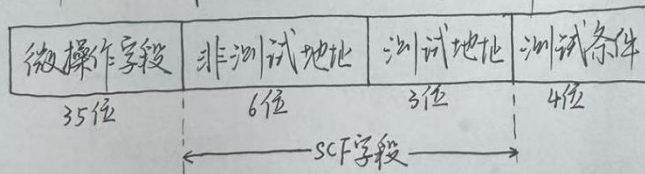 微操作字段 非测试地址 测试地址 测试条件
35位 6位 3位 4位
SCF字段